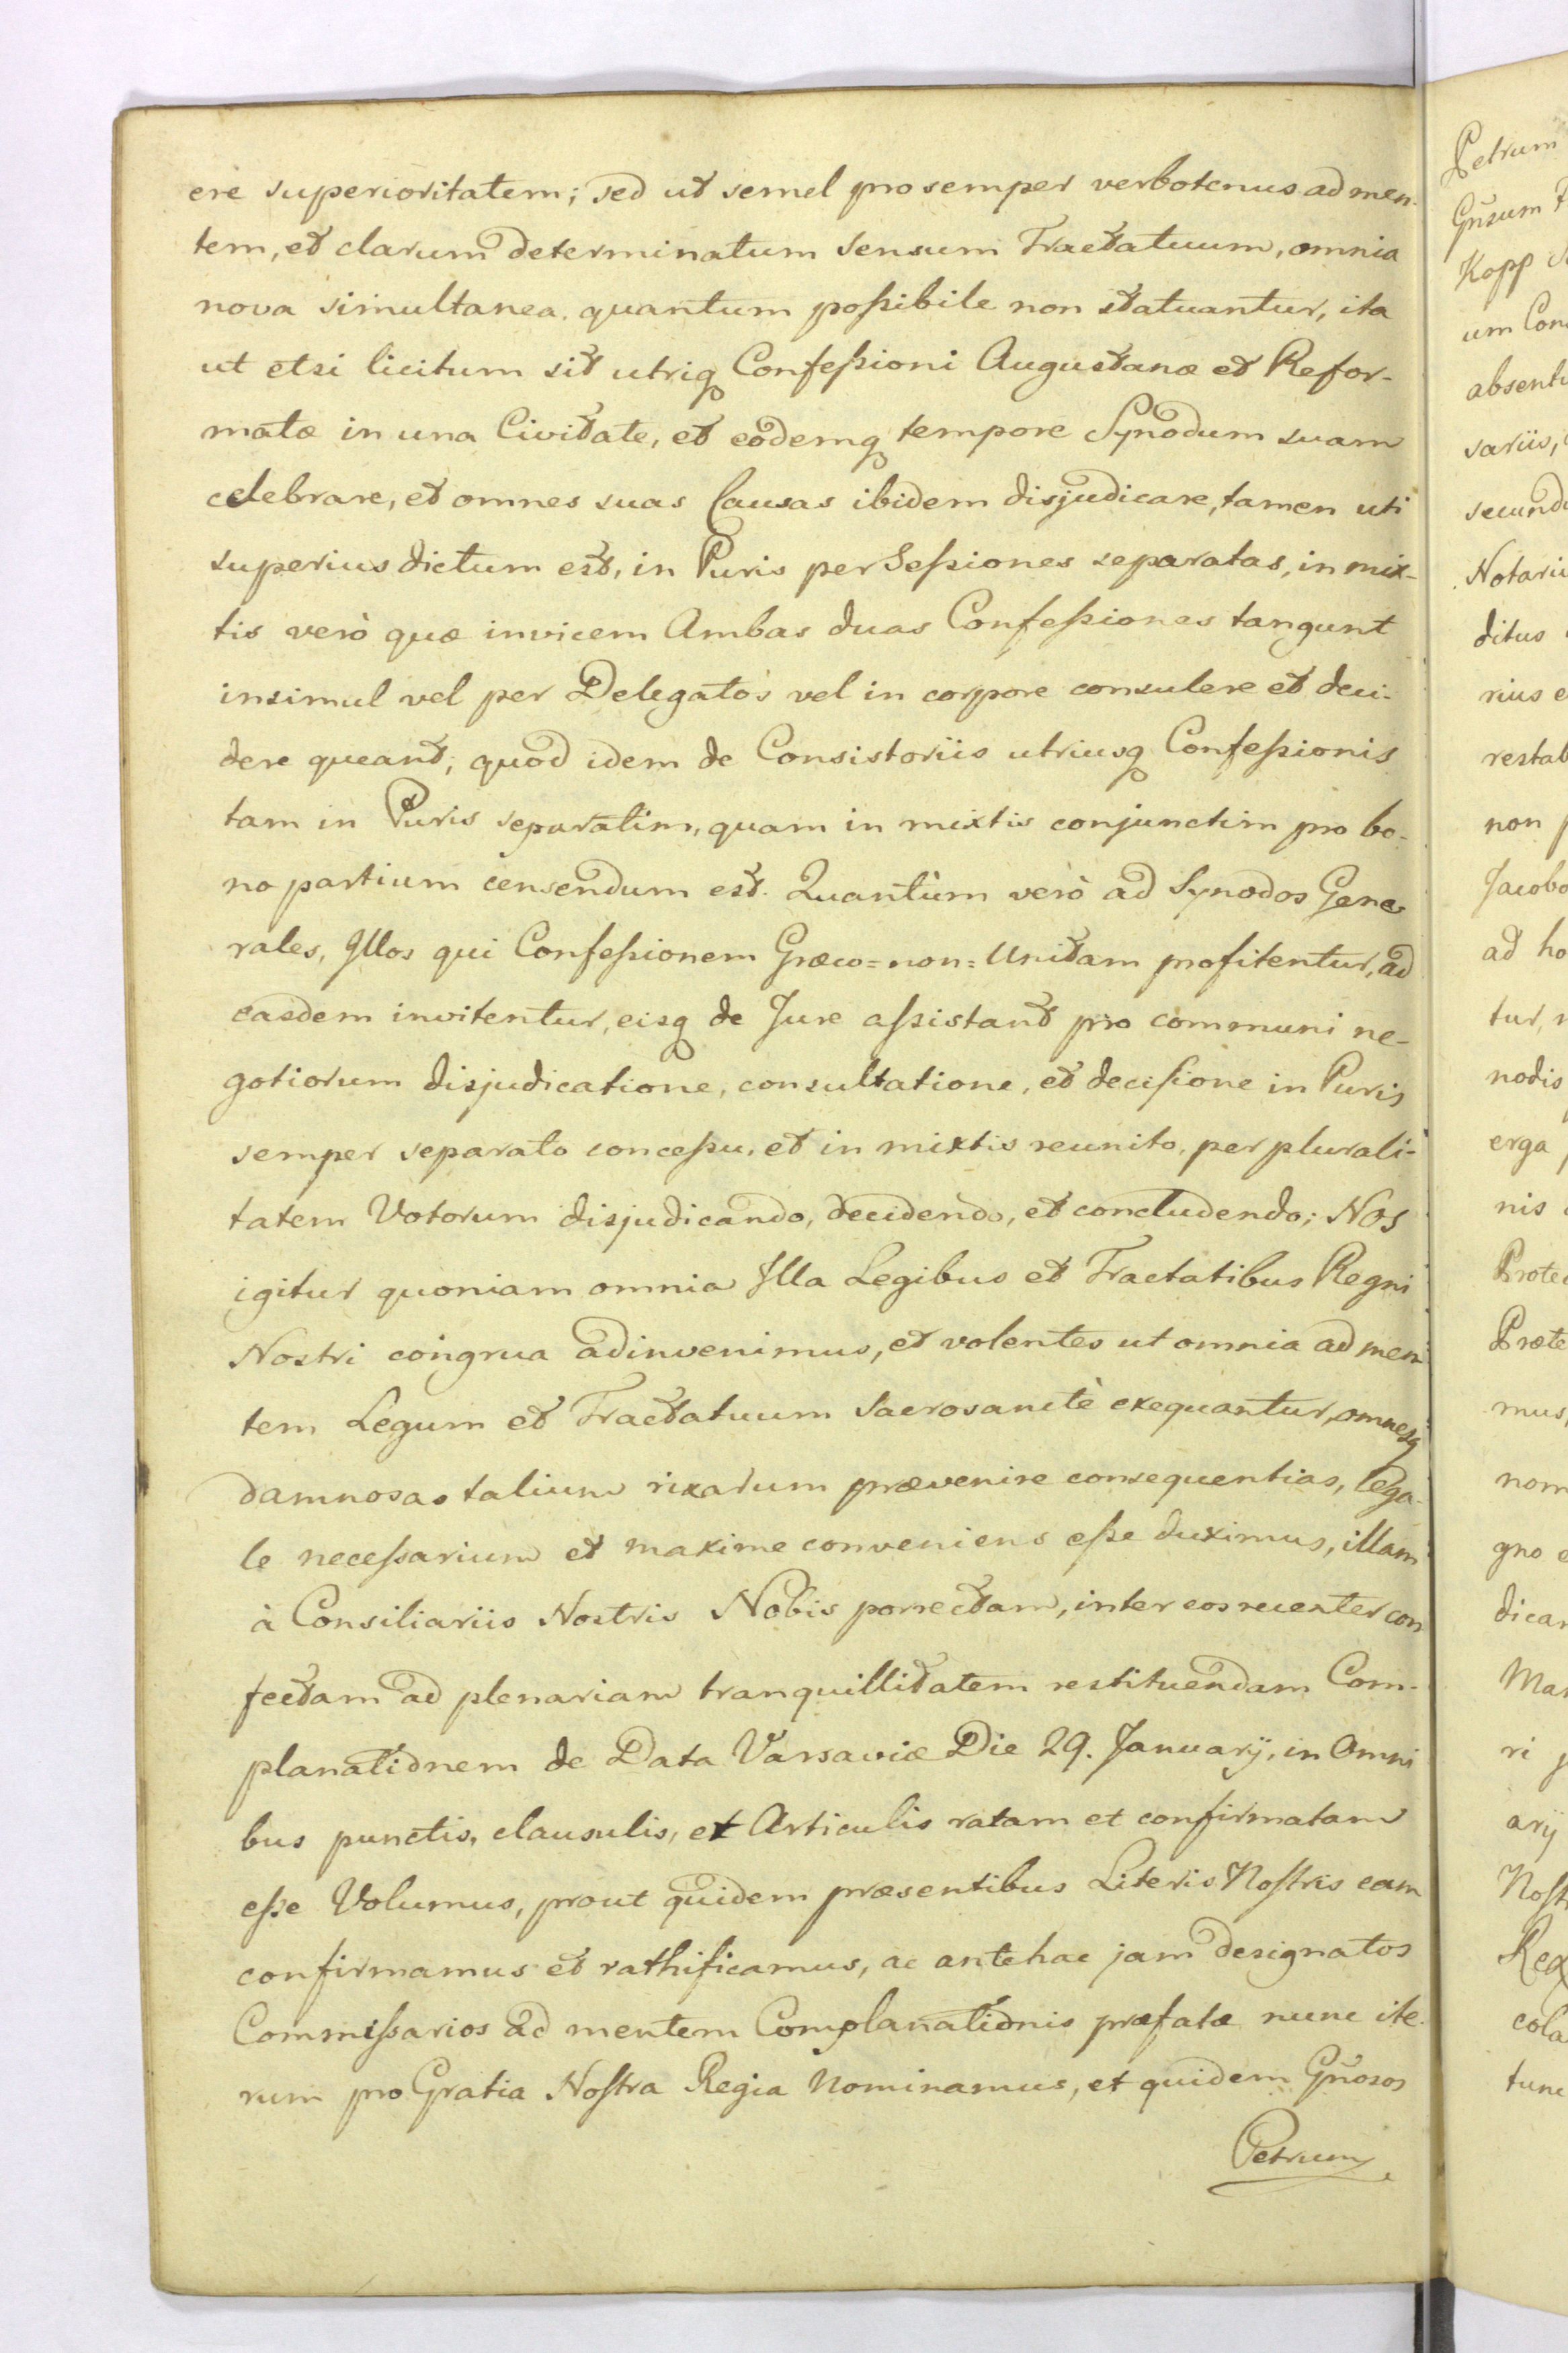 ere superioritatem; sed ut semel pro semper verbotenus ad men-
tem, et clarum determinatum sensum Tractatuum, omnia
nova simultanea quantum poßibile non statuantur, ita
ut etsi licitum sit utriq Confeßioni Augustanæ et Refor-
matæ in una Civitate, et eodemq tempore Synodum suam
celebrare, et omnes suas Causas ibidem disjudicare, tamen uti
superius dictum est, in Puris per Seßiones separatas, in mix-
tis verò quæ invicem Ambas duas Confeßiones tangunt
insimul vel per Delegatos vel in corpore consulere et deci-
dere queant; quod idem de Consistoriis utriusq Confeßionis
tam in Puris separatim, quam in mixtis conjunctim pro bo-
no partium censendum est. Quantùm verò ad Synodos Gene
rales, Illos qui Confeßionem Græco=non=Unitam profitentur, ad
easdem invitentur, eisq de Jure aßistant pro communi ne-
gotiorum disjudicatione, consultatione, et decisione in Puris
semper separato conceßu, et in mixtis reunito, per plurali-
tatem Votorum disjudicando, decidendo, et concludendo; Nos
igitur quoniam omnia Illa Legibus et Tractatibus Regni
Nostri congrua adinvenimus, et volentes ut omnia ad men
tem Legum et Tractatuum Sacrosanctè exequantur, omnesq
damnosas talium rixarum prævenire consequentias, lega-
le neceßarium et maxime conveniens eße duximus, illam
à Consiliariis Nostris Nobis porrectam, inter eos recenter con
fectam ad plenariam tranquillitatem restituendam Com-
planationem de Data Varsaviæ Die 29. Januarÿ, in Omni
bus punctis, clausulis, et Articulis ratam et confirmatam
eße Volumus, prout quidem præsentibus Literis Nostris eam
confirmamus et rathificamus, ac antehac jam designatos
Commißarios ad mentem Complanationis præfatæ nunc ite-
rum pro Gratia Nostra Regia Nominamus, et quidem Gñosos
Petrum
Petrum
Gñsum
Kopp
um Con
absent
sariis,
secund
Notari
ditus
rius e
restab
non
Jacobo
ad ho
tur,
nodis
erga
nis
Protec
Præte
mus,
nom
gno
dicar
Mar
ri
arÿ
Nost
Reg
cola
tunc